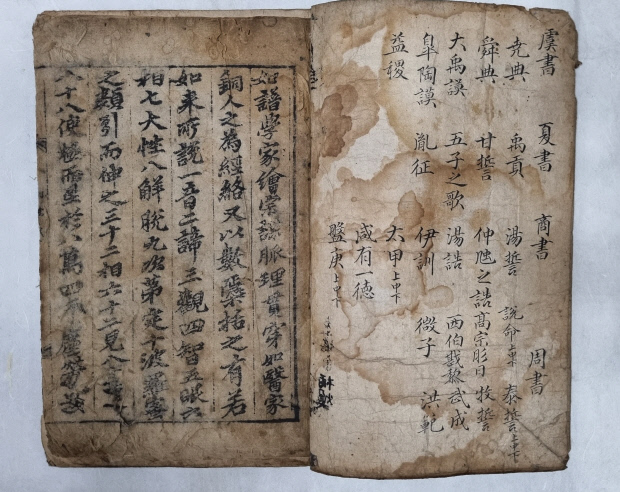 虞書 夏書 商書 周書
堯典 禹貢 湯誓 說命上中下 泰誓上中下
舜典 甘誓 仲虺之誥 高宗肜日 牧誓
大禹謨 五子之歌 湯誥 西伯戡黎 武成
皐陶謨 胤征 伊訓 微子 洪範
益稷 太甲上中下
咸有一德
盤庚上中下
如語學家繪掌談脈理貫穿如醫家
銅人之為經絡又以數櫽括之有若
如来所說一音二諦三觀四智五眼六
相七大性八解脫九次第定十波羅蜜
之類引而伸之三十二相六十二見
八十八使極而至於八萬四千塵勞